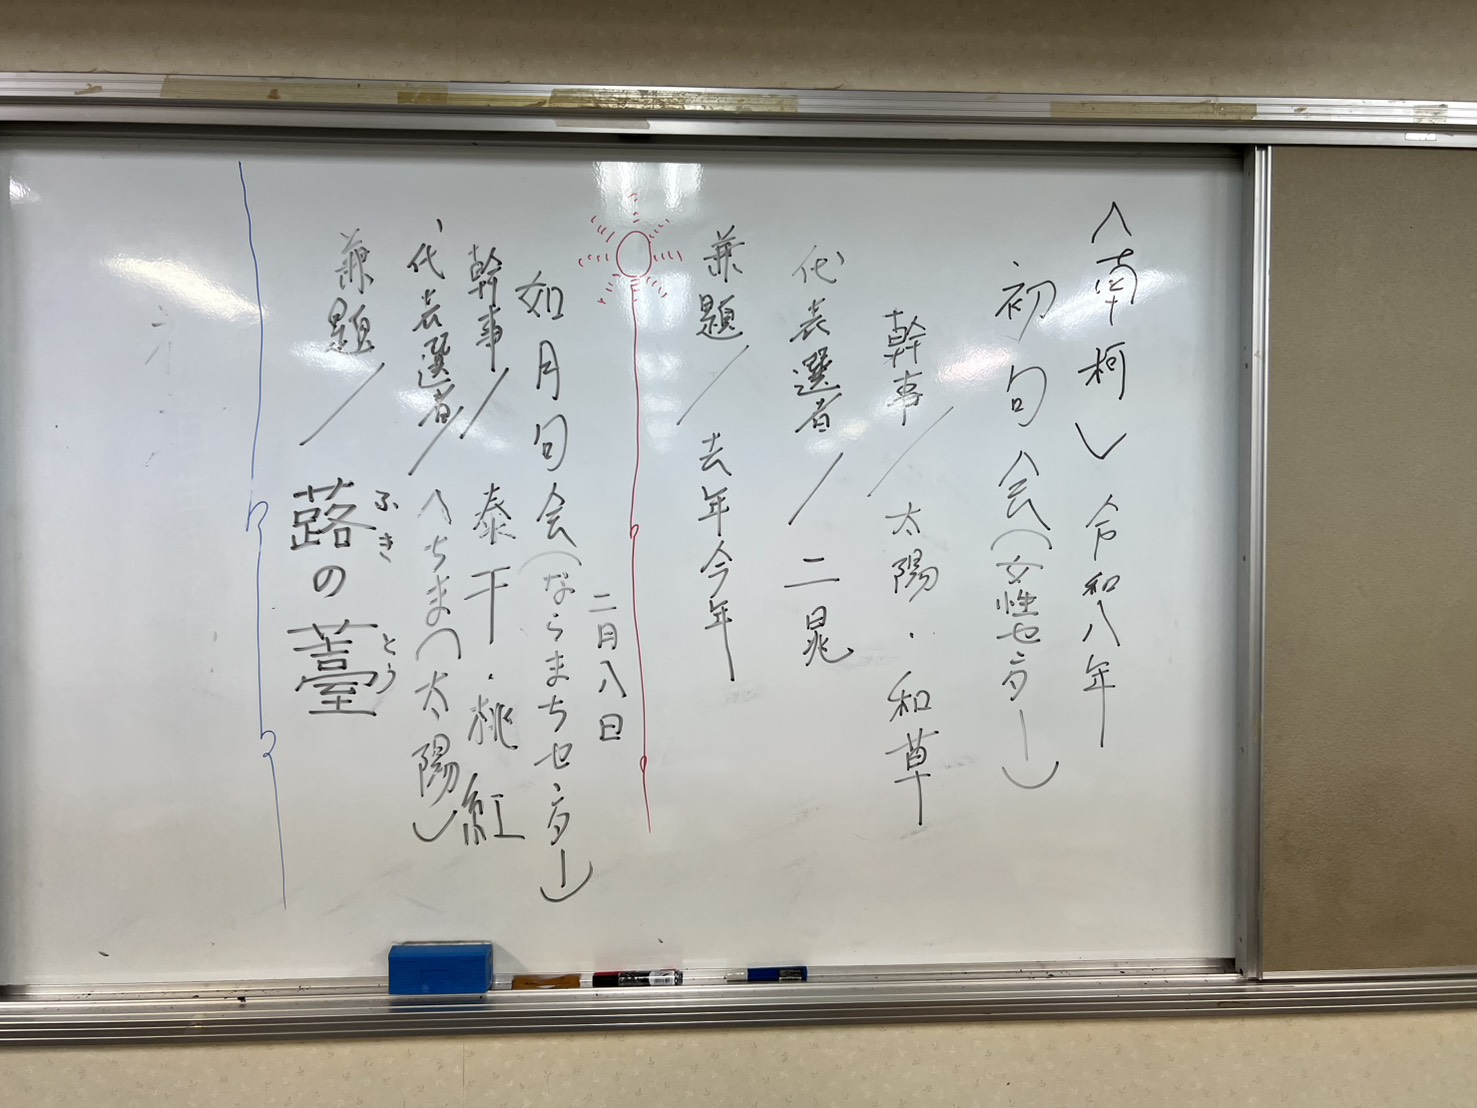 〈南柯〉令和八年
初句会(女性センター)
幹事／太陽・和草
代表選者／二晁
兼題／去年今年
二月八日
如月句会(ならまちセンター)
幹事／泰干・桃紅
代表選者／へちま(太陽)
兼題／蕗の薹
ふき とう